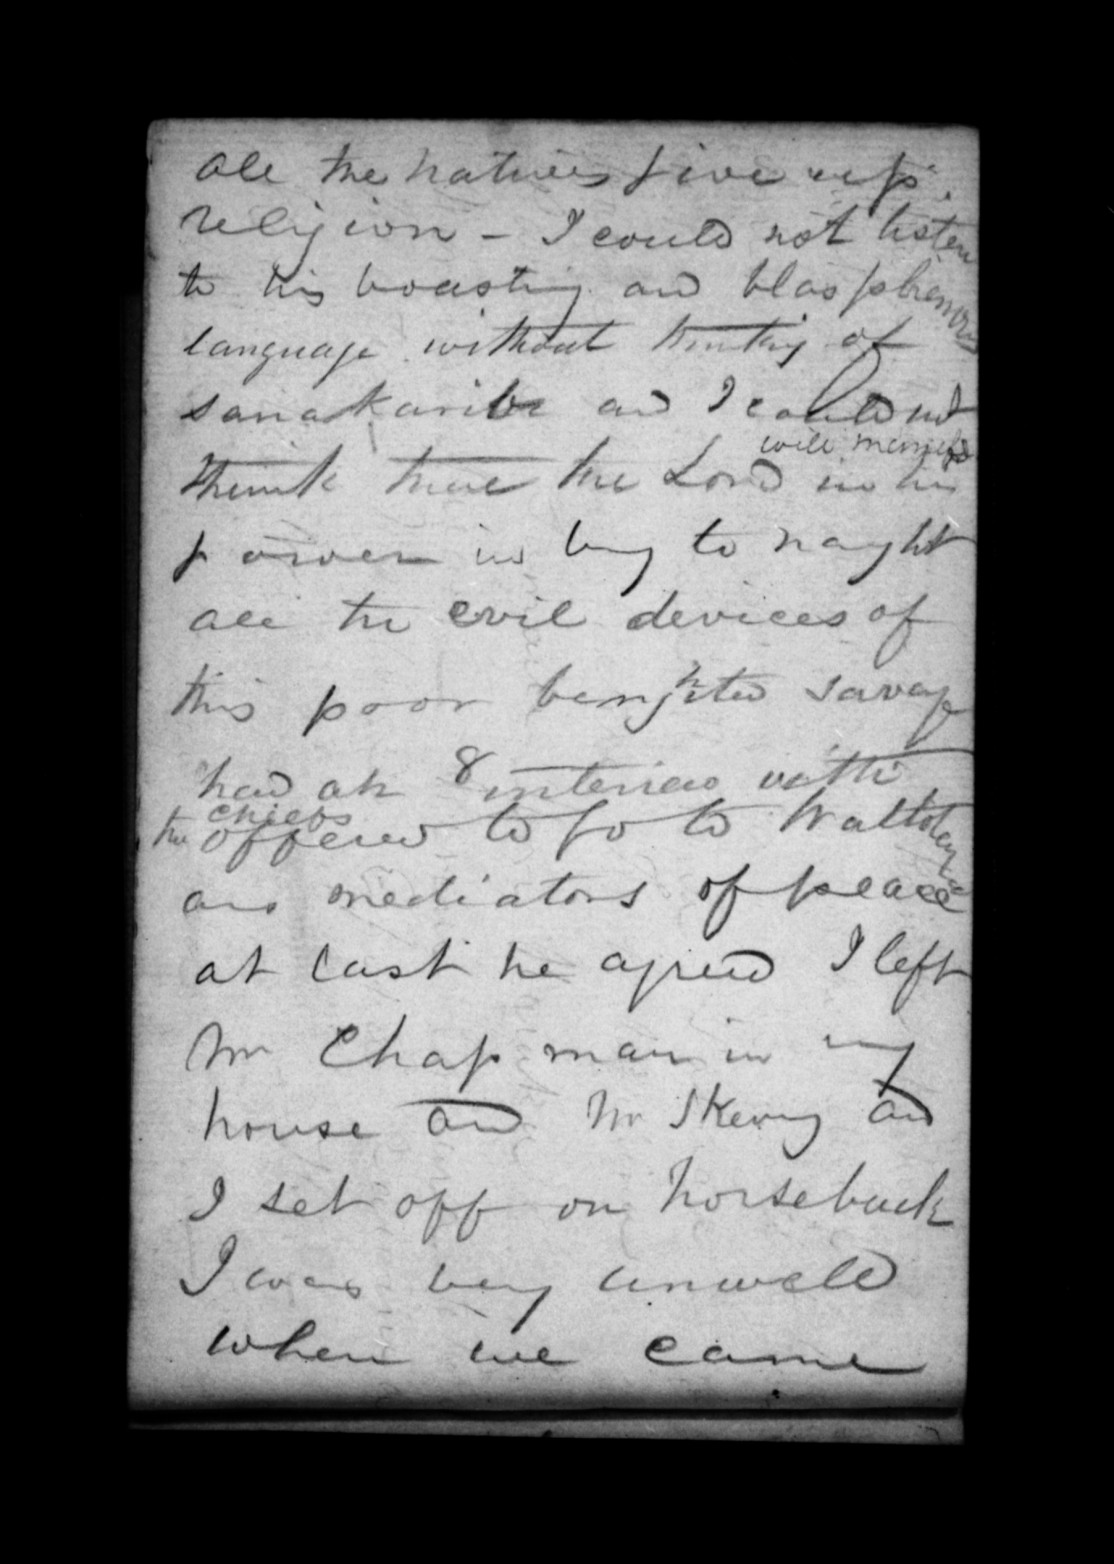 all the natives give up
religion - I could not listen
to his boasting and blasphemous
language without thinking of
sanakaribe and I could not
will manifest
think that the Lord in his
power in bring to naught
all the evil devices of
this poor benighted savage
had an interview with
the chiefs
offered to go to
and mediators of peace
at last he agreed I left
Mr Chapman in my
house and Mr Skevy and
I set off on horseback
I was very unwell
when we came